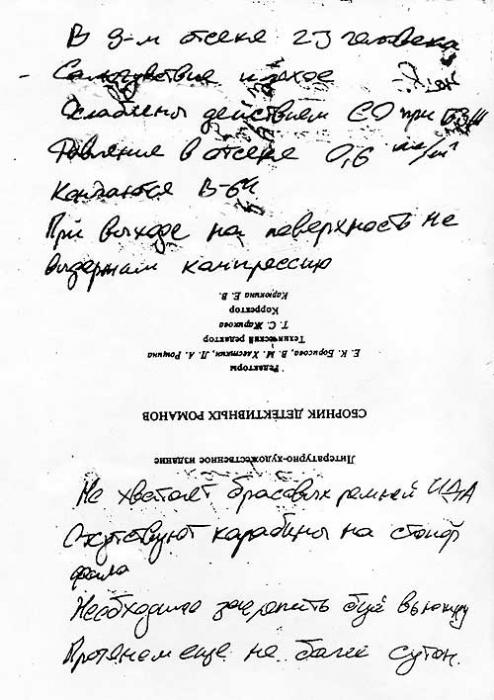 В 9-м отсеке 23 человека
- Самочувствие плохое
Ослаблены действием СО при БЗЖ
Давление в отсеке 0,6 кг/см²
Кончаются В-64
При выходе на поверхность не
выдержим компрессию
Литературно-художественное издание
СБОРНИК ДЕТЕКТИВНЫХ РОМАНОВ
Редакторы
Е. К. Борисова, В. М. Хластикин, Л. А. Рощина
Технический редактор
Т. С. Жарикова
Корректор
Карюкина Е. В.
Не хватает брасовых ремней ИДА
Отсутствуют карабины на стопор
фала
Необходимо закрепить буй вьюшку
Протянем еще не более суток.